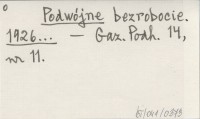 Podwójne bezrobocie.
1926... — Gaz. Podh. 14,
nr 11.